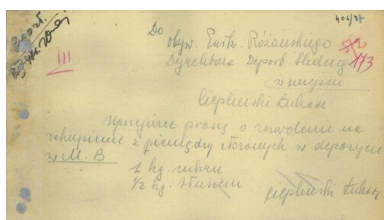 406/48
III
Do
obyw. Pułk. Różańskiego
Dyrektora Depart. Śledczego
173
w miejscu
Ciepliński Łukasz
Uprzejmie proszę o zezwolenie na
zakupienie z pieniędzy złożonych w depozycie
w M. B
1 kg. cukru
1/2 kg. tłuszczu
Ciepliński Łukasz